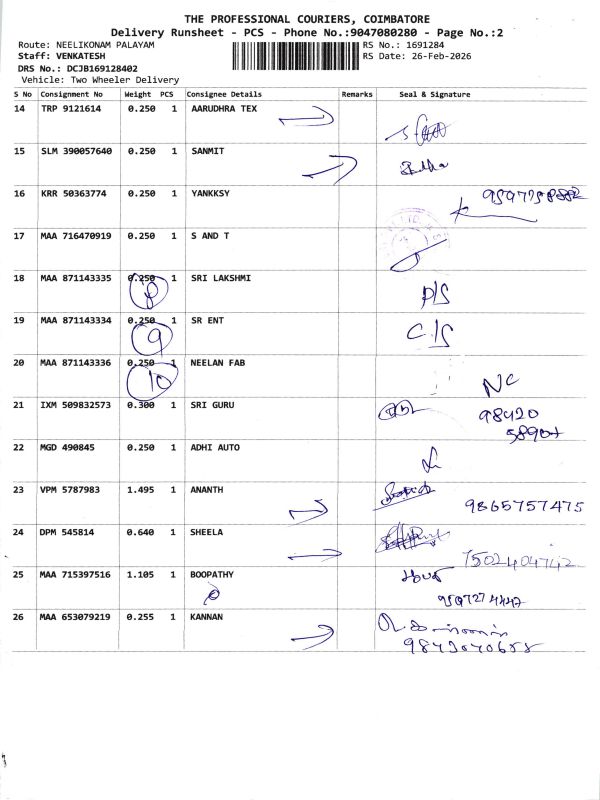 THE PROFESSIONAL COURIERS, COIMBATORE
Delivery Runsheet - PCS - Phone No.:9047080280 - Page No.:2
Route: NEELIKONAM PALAYAM RS No.: 1691284
Staff: VENKATESH RS Date: 26-Feb-2026
DRS No.: DCJB169128402
Vehicle: Two Wheeler Delivery
S No Consignment No Weight PCS Consignee Details Remarks Seal & Signature
14 TRP 9121614 0.250 1 AARUDHRA TEX
15 SLM 390057640 0.250 1 SANMIT
16 KRR 50363774 0.250 1 YANKKSY
17 MAA 716470919 0.250 1 S AND T
18 MAA 871143335 0.250 1 SRI LAKSHMI
8 P/S
19 MAA 871143334 0.250 1 SR ENT
9 C/S
20 MAA 871143336 0.250 1 NEELAN FAB
10 NC
21 IXM 509832573 0.300 1 SRI GURU
98420
22 MGD 490845 0.250 1 ADHI AUTO
23 VPM 5787983 1.495 1 ANANTH
9865757475
24 DPM 545814 0.640 1 SHEELA
7502404742
25 MAA 715397516 1.105 1 BOOPATHY
26 MAA 653079219 0.255 1 KANNAN